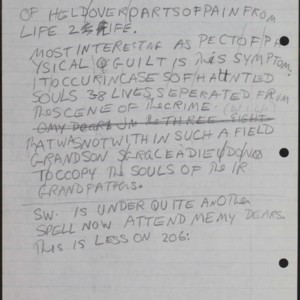 OF HELD/OVER/PARTS OF PAIN FROM
LIFE 2 LIFE.
MOST INTERESTING ASPECT OF PA
YSICAL GUILT IS This SYMPTOM.
IT OCCUR IN CASES OF HAUNTED
SOULS 38 LIVES SEPERATED FROM
The SCENE OF The CRIME.
OMY DEARS The THREE
That WAS NOT WITH IN SUCH A FIELD
GRANDSON
TO COPY The SOULS OF The IR
GRANDFATHERS.
SW. IS UNDER QUITE ANOTher
SPELL NOW ATTEND ME MY DEARS
This IS LESS ON 206: